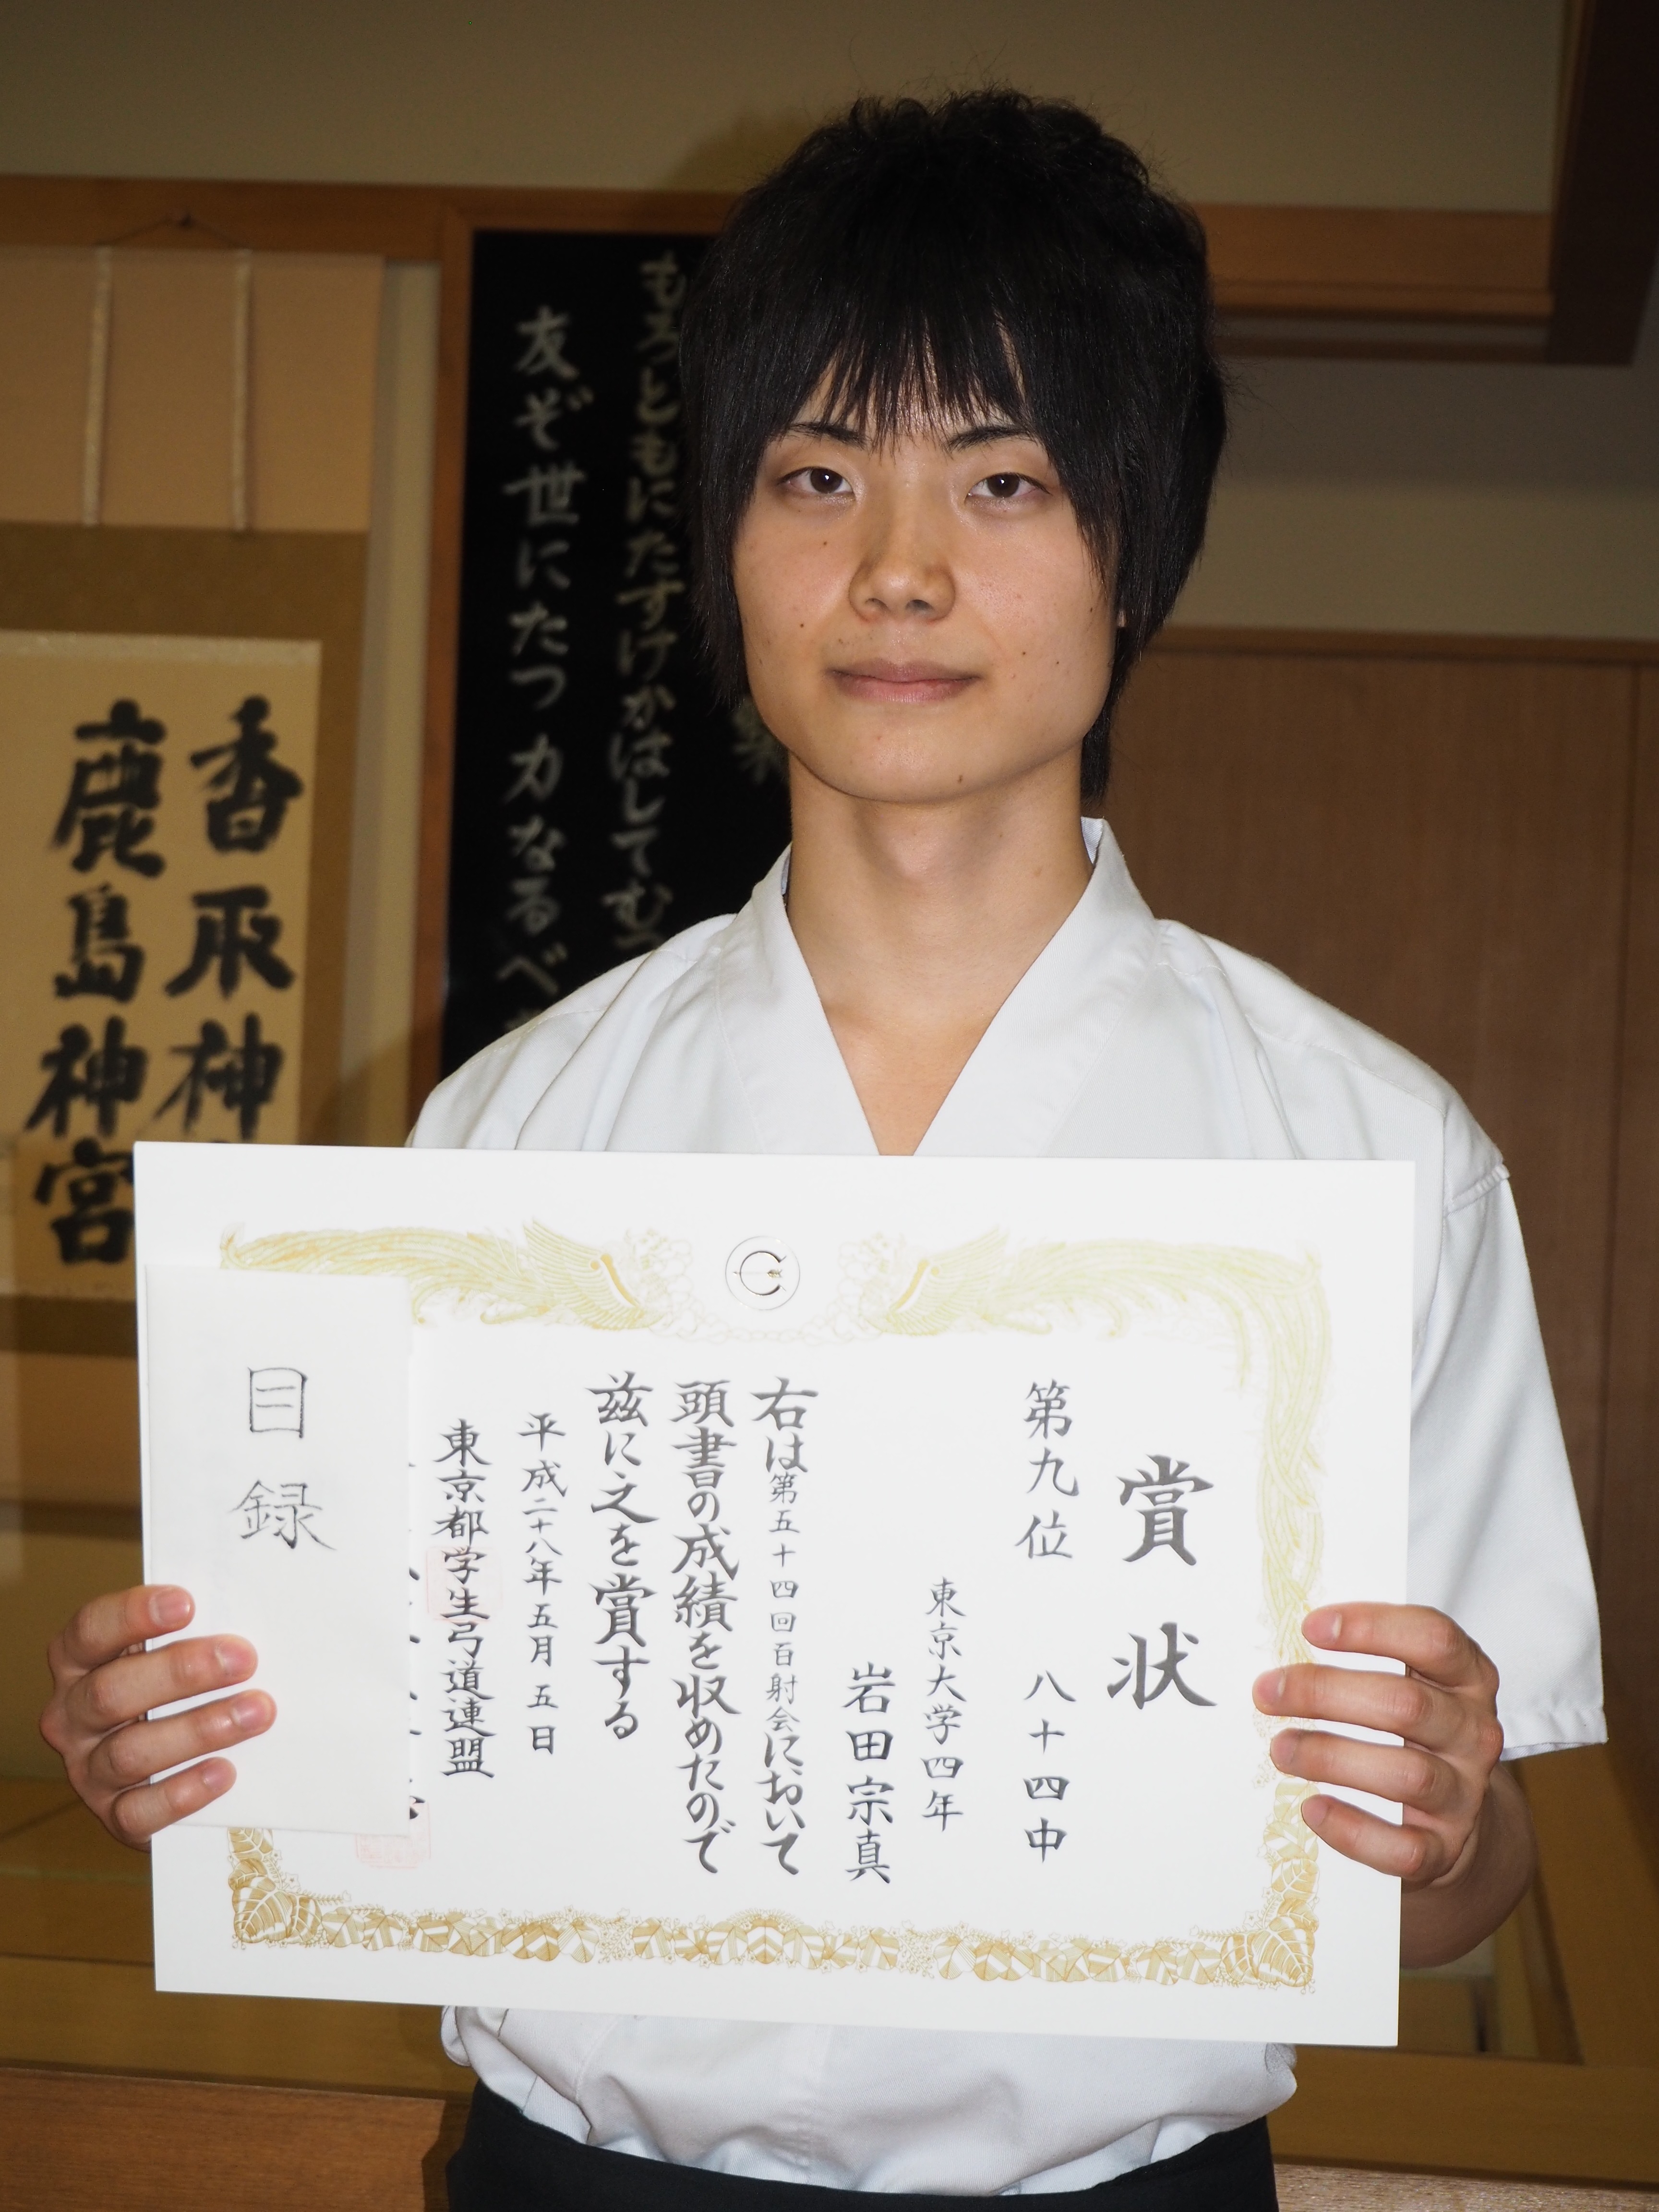 賞状
第九位 八十四中
東京大学四年
岩田宗真
右は第五十四回百射会において
頭書の成績を収めたので
茲に之を賞する
平成二十八年五月五日
東京都学生弓道連盟
目録
香取神
鹿島神宮
もろともにたすけかはしてむつ
友ぞ世にたつ力なるべ